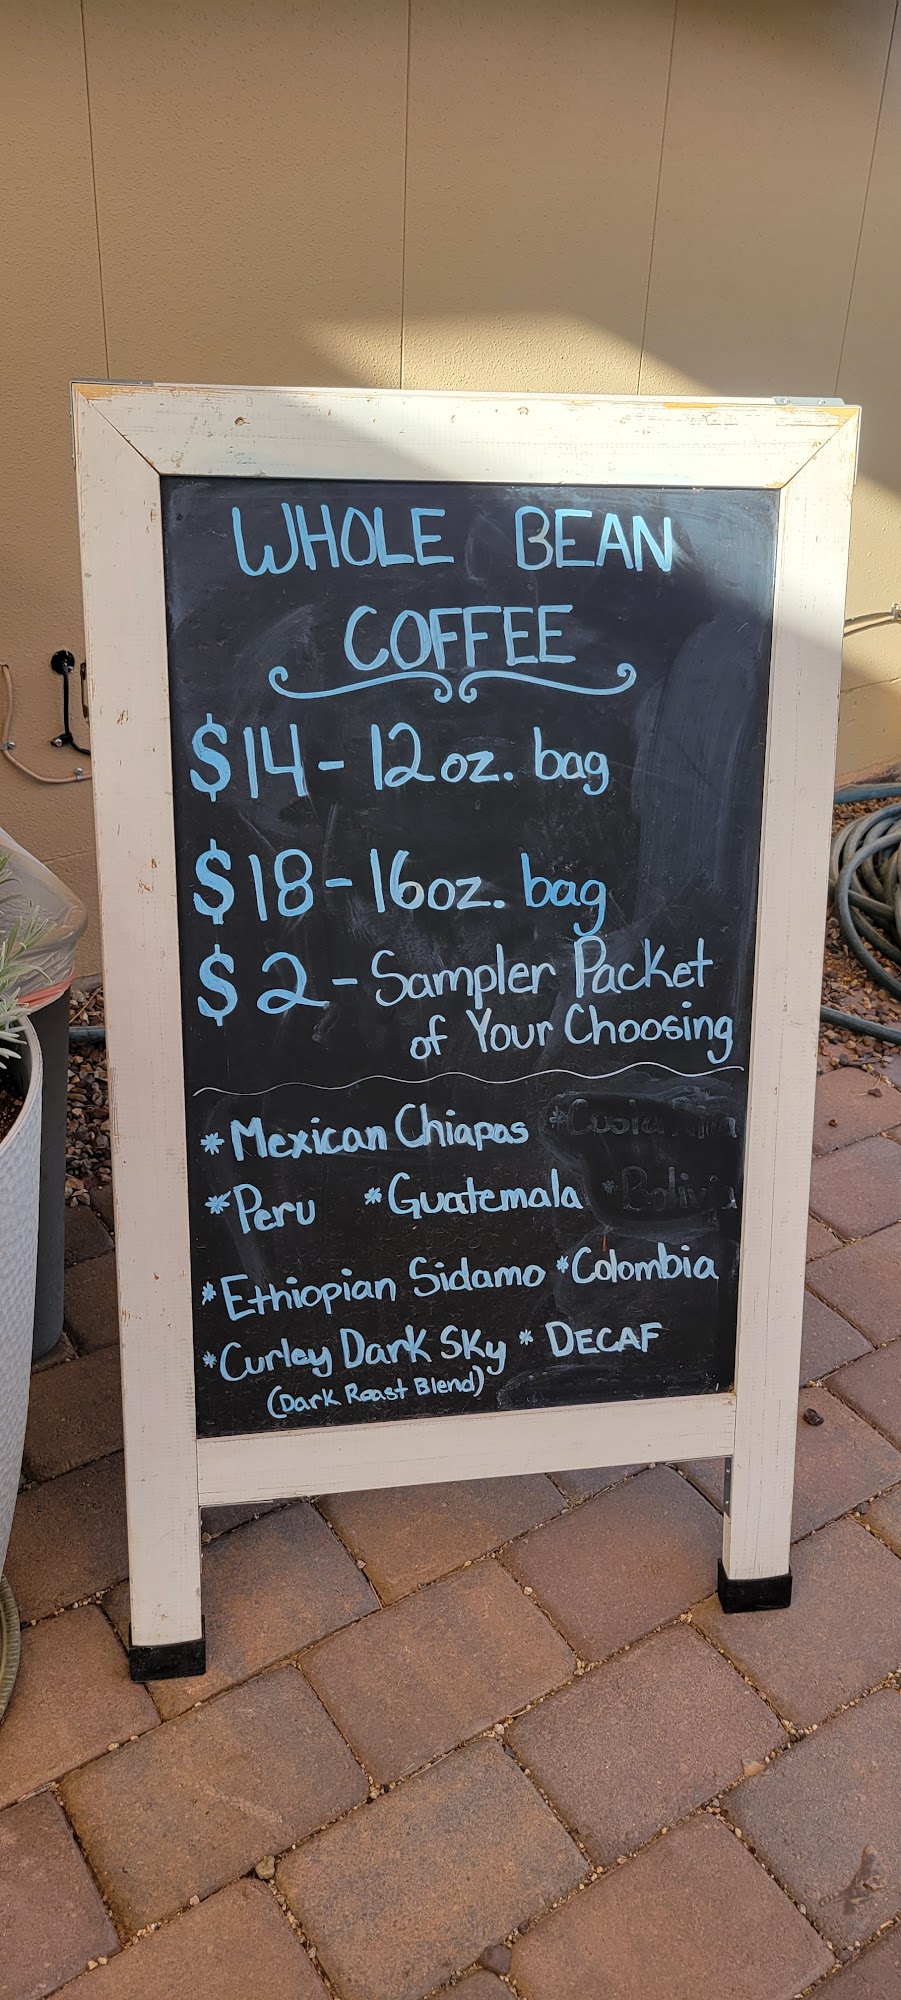 WHOLE BEAN
COFFEE
$14 - 12oz. bag
$18 - 16oz. bag
$2 - Sampler Packet
of Your Choosing
* Mexican Chiapas * Costa Rica
* Peru * Guatemala * Bolivia
* Ethiopian Sidamo * Colombia
* Curley Dark Sky * DECAF
(Dark Roast Blend)